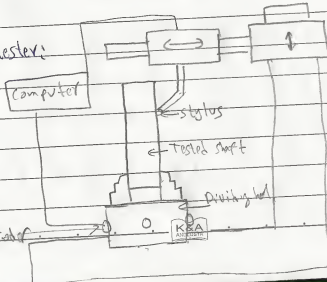 ester:
Computer
stylus
Tested shaft
Dividing hed
K&A